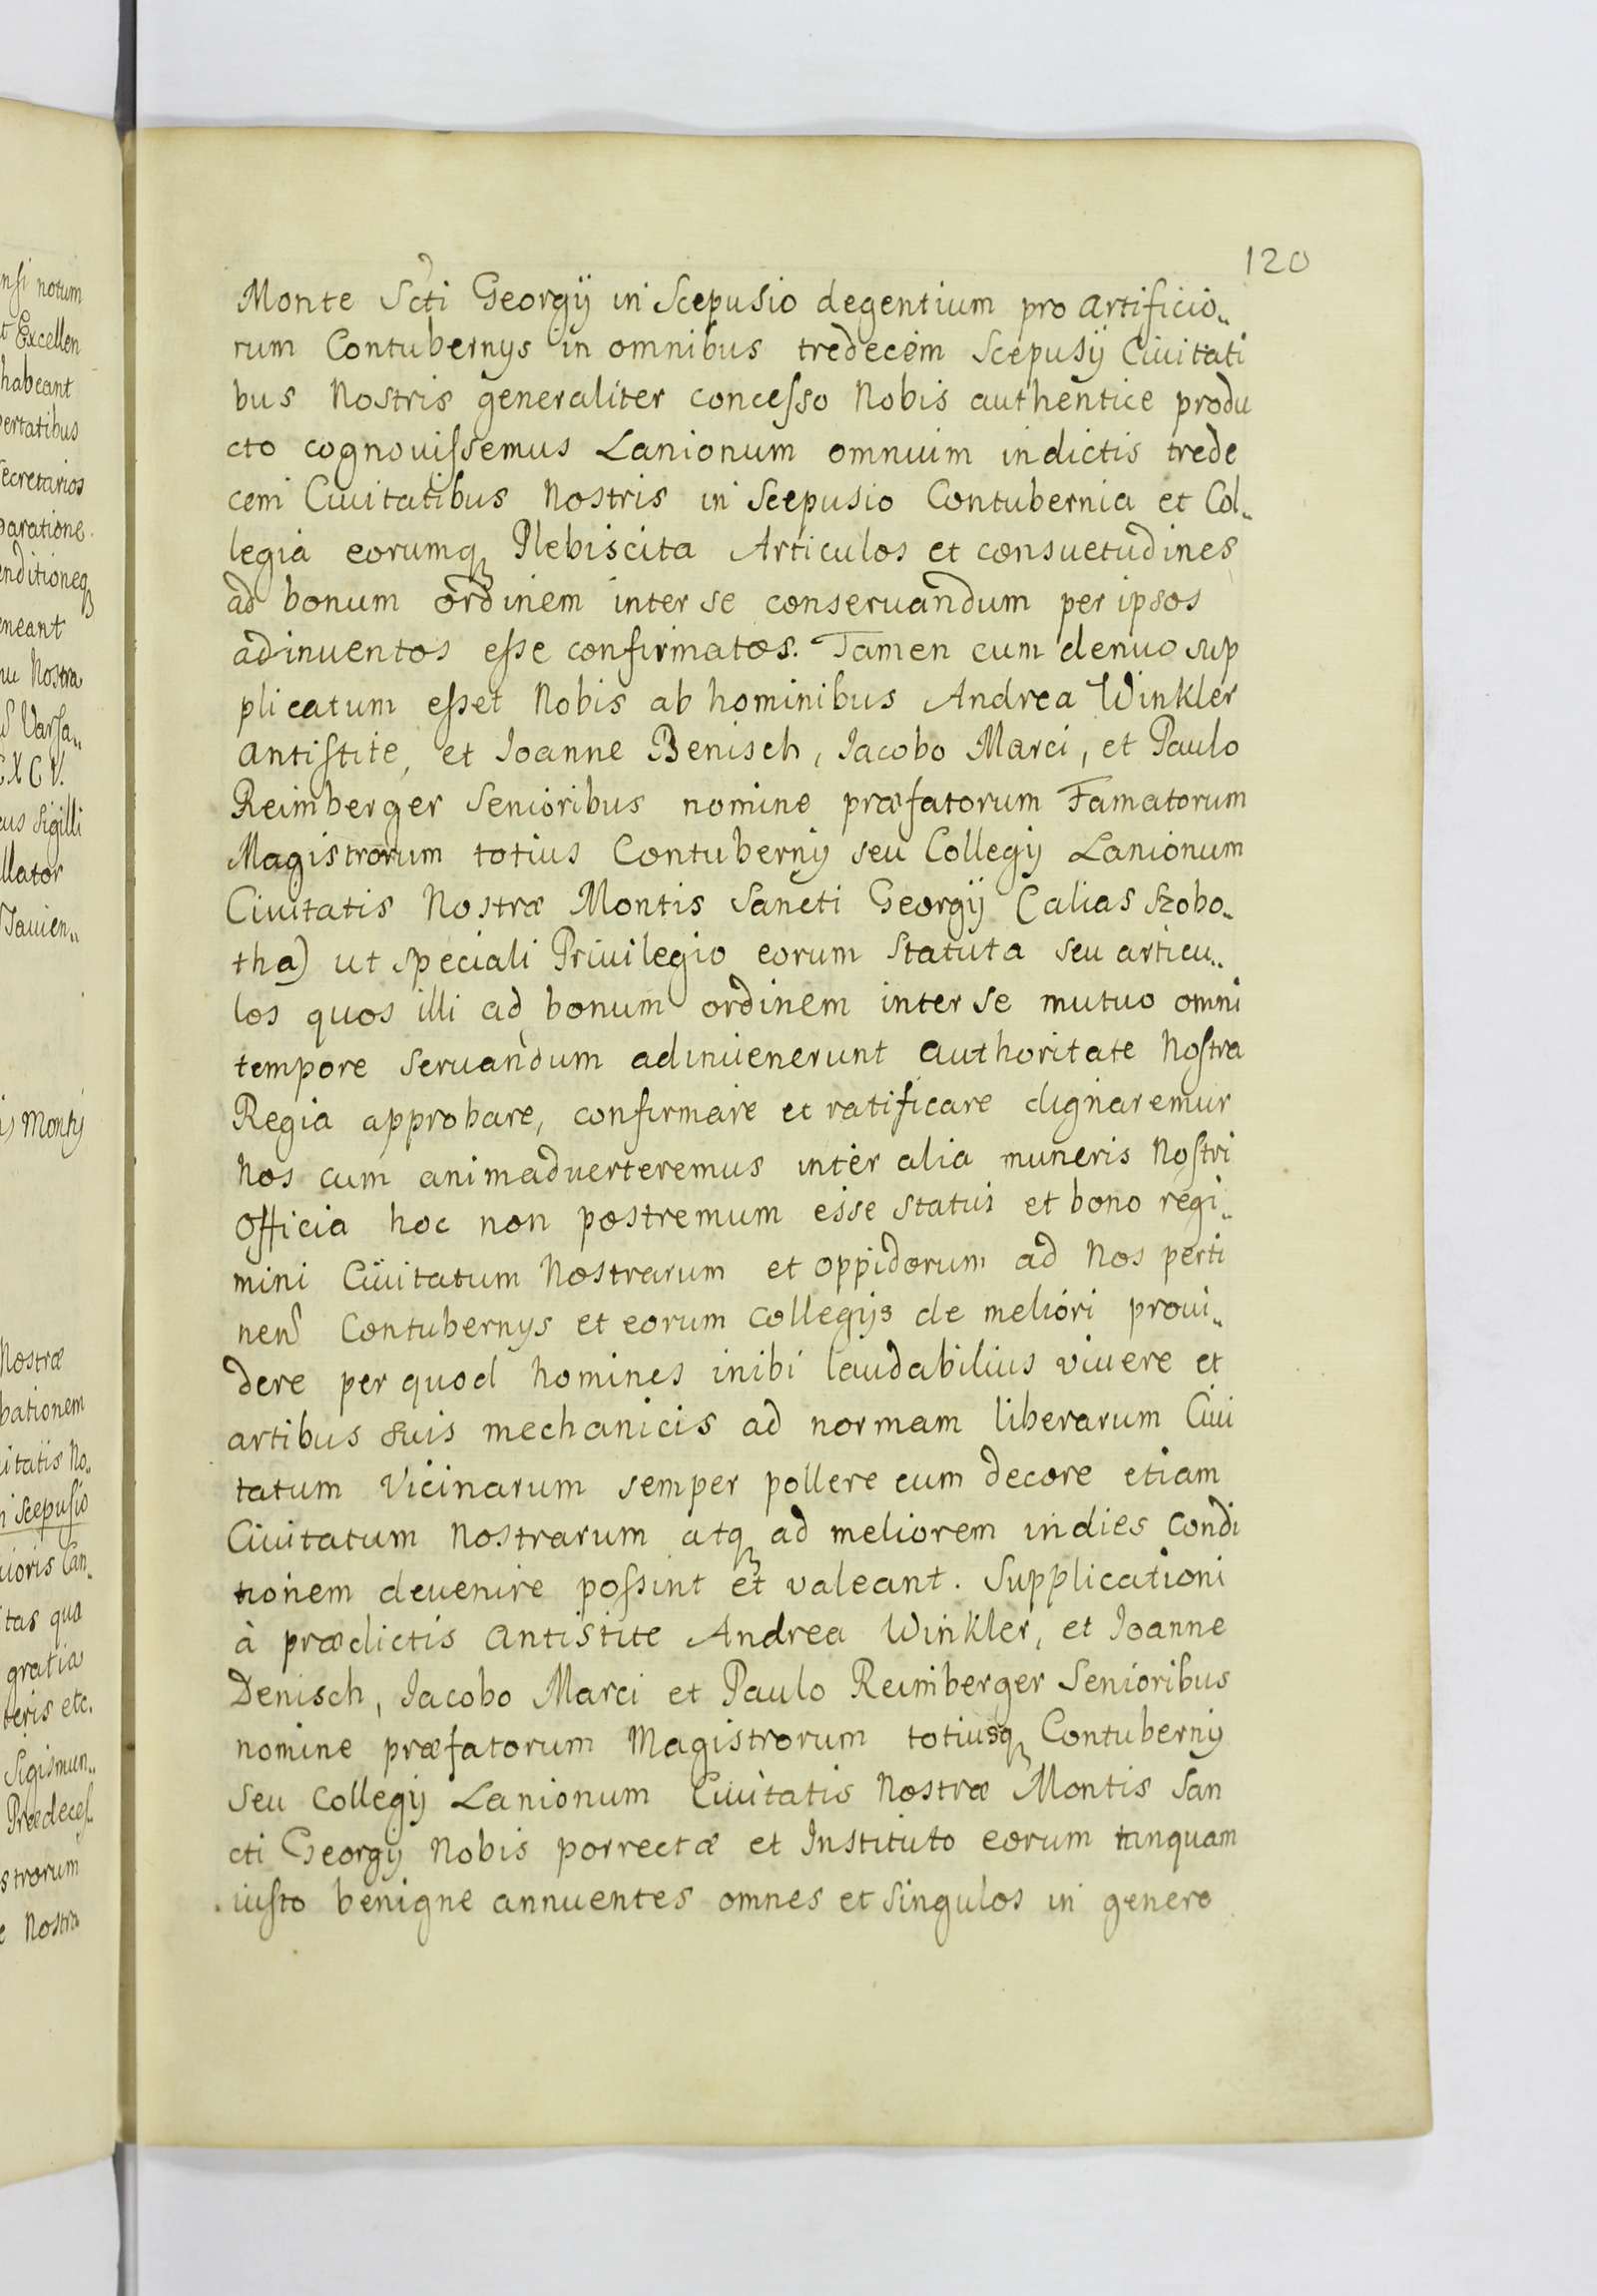 120
Monte Scti Georgÿ in Scepusio degentium pro artificio„
rum Contubernÿs in omnibus tredecem Scepusÿ Civitati
bus Nostris generaliter concesso Nobis authentice produ
cto cognouissemus Lanionum omnium indictis trede
cem Ciuitatibus Nostris in Scepusio Contubernia et Col„
legia eorumq Plebiscita Articulos et consuetudines
ad bonum ordinem inter se conseruandum per ipsos
adinuentos esse confirmatos. Tamen cum denuo sup
plicatum esset Nobis ab hominibus Andrea Winkler
antistite, et Ioanne Benisch, Iacobo Marci, et Paulo
Reimberger Senioribus nomine præfatorum Famatorum
Magistrorum totius Contubernÿ seu Collegÿ Lanionum
Ciuitatis Nostræ Montis Sancti Georgÿ (alias Szobo„
tha) ut speciali Priuilegio eorum Statuta seu articu„
los quos illi ad bonum ordinem inter se mutuo omni
tempore seruandum adinuenerunt authoritate Nostra
Regia approbare, confirmare et ratificare dignaremur
Nos cum animaduerteremus inter alia muneris Nostri
Officia hoc non postremum esse status et bono regi„
mini Ciuitatum Nostrarum et oppidorum ad Nos perti
nen Contubernÿs et eorum collegÿs de meliori proui„
dere per quod homines inibi laudabilius viuere et
artibus suis mechanicis ad normam liberarum Ciui
tatum Vicinarum semper pollere cum decore etiam
Ciuitatum Nostrarum atq ad meliorem indies condi
tionem deuenire possint et valeant. Supplicationi
à prædictis antistite Andrea Winkler, et Ioanne
Denisch, Iacobo Marci et Paulo Reimberger Senioribus
nomine præfatorum Magistrorum totiusq Contubernÿ
Seu Collegÿ Lanionum Ciuitatis Nostræ Montis San
cti Georgÿ Nobis porrectæ et Instituto eorum tanquam
iusto benigne annuentes omnes et singulos in genere